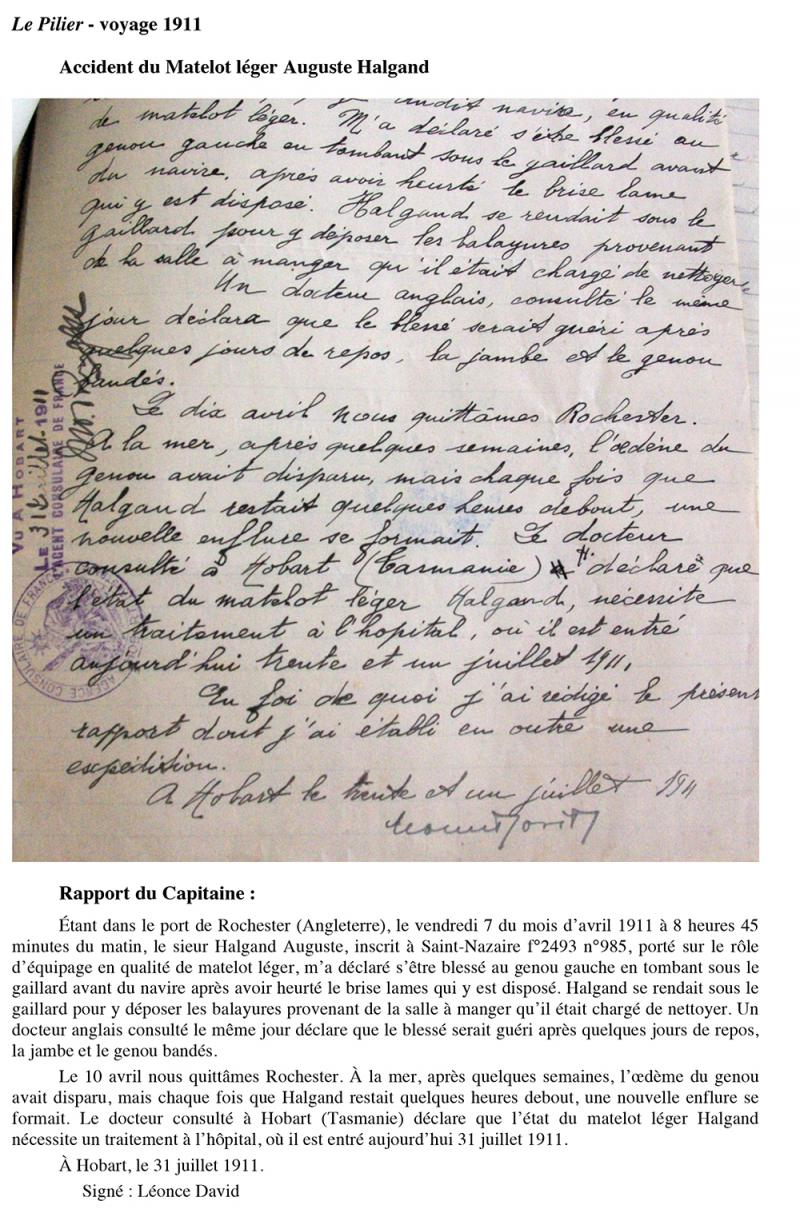 Le Pilier - voyage 1911
Accident du Matelot léger Auguste Halgand
dudit navire, en qualité
de matelot léger. M'a déclaré s'être blessé au
genou gauche en tombant sous le gaillard avant
du navire, après avoir heurté le brise lame
qui y est disposé. Halgand se rendait sous le
gaillard pour y déposer les balayures provenant
de la salle à manger qu'il était chargé de nettoyer.
Un docteur anglais, consulté le même
jour déclara que le blessé serait guéri après
quelques jours de repos, la jambe et le genou
bandés.
Le dix avril nous quittâmes Rochester.
A la mer, après quelques semaines, l'œdène du
genou avait disparu, mais chaque fois que
Halgand restait quelques heures debout, une
nouvelle enflure se formait. Le docteur
consulté à Hobart (Tasmanie) déclare que
l'état du matelot léger Halgand, nécessite
un traitement à l'hopital, où il est entré
aujourd'hui trente et un juillet 1911.
En foi de quoi j'ai rédigé le présent
rapport dont j'ai établi en outre une
expédition.
A Hobart le trente et un juillet 1911
VU A HOBART
LE 31 juillet 1911
L'AGENT CONSULAIRE DE FRANCE
AGENCE CONSULAIRE DE FRANCE
Rapport du Capitaine :
Étant dans le port de Rochester (Angleterre), le vendredi 7 du mois d'avril 1911 à 8 heures 45
minutes du matin, le sieur Halgand Auguste, inscrit à Saint-Nazaire f°2493 n°985, porté sur le rôle
d'équipage en qualité de matelot léger, m'a déclaré s'être blessé au genou gauche en tombant sous le
gaillard avant du navire après avoir heurté le brise lames qui y est disposé. Halgand se rendait sous le
gaillard pour y déposer les balayures provenant de la salle à manger qu'il était chargé de nettoyer. Un
docteur anglais consulté le même jour déclare que le blessé serait guéri après quelques jours de repos,
la jambe et le genou bandés.
Le 10 avril nous quittâmes Rochester. À la mer, après quelques semaines, l'œdème du genou
avait disparu, mais chaque fois que Halgand restait quelques heures debout, une nouvelle enflure se
formait. Le docteur consulté à Hobart (Tasmanie) déclare que l'état du matelot léger Halgand
nécessite un traitement à l'hôpital, où il est entré aujourd'hui 31 juillet 1911.
À Hobart, le 31 juillet 1911.
Signé : Léonce David